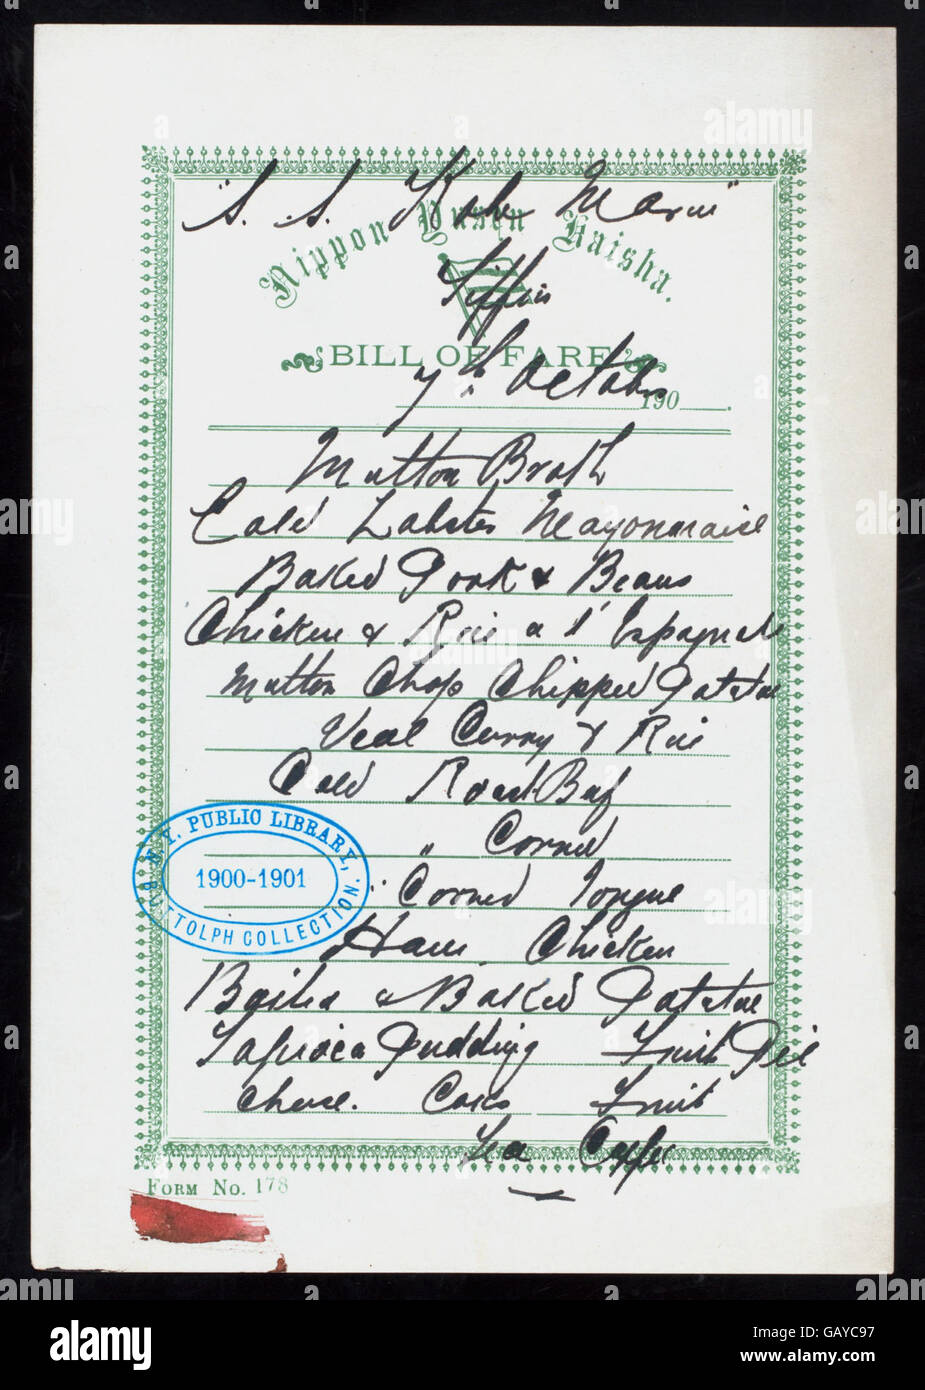 "S. S. Kobe Maru"
Nippon Yusen Kaisha.
Tiffin
BILL OF FARE
7th October 190 .
Mutton Broth
Cold Lobster Mayonnaise
Baked Pork & Beans
Chicken & Rice a l'Espagnole
Mutton Chop Chipped Potatoe
Veal Curry & Rice
Cold Roast Beef
" Corned
" Corned Tongue
Ham, Chicken
Boiled & Baked Potatoe
Tapioca Pudding Fruit Pie
Cheese. Cakes Fruit
Tea Coffee
N. Y. PUBLIC LIBRARY,
1900-1901
BUTTOLPH COLLECTION.
FORM NO. 178
alamy
alamy stock photo
GAYC97
www.alamy.com